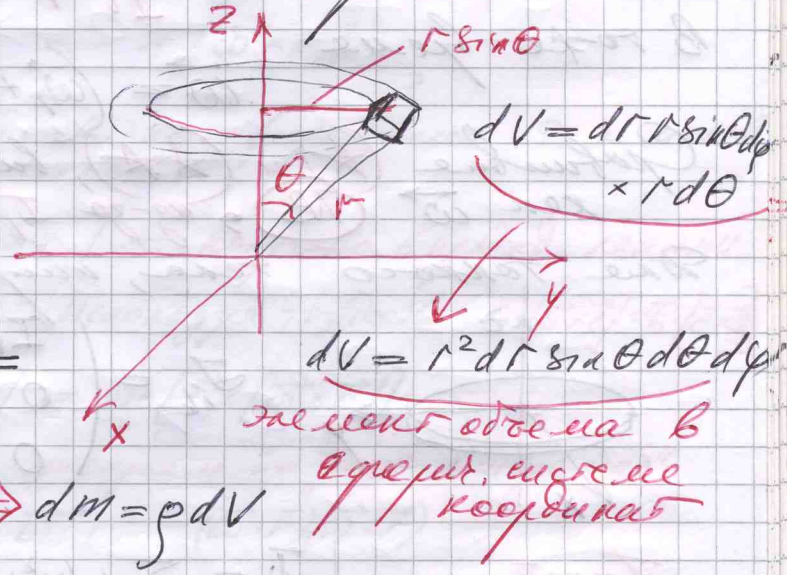 z
r sinθ
dV = dr r sinθ dφ
× r dθ
θ
r
y
=
dV = r² dr sinθ dθ dφ
x
элемент объема в
сферич. системе
координат
⇒ dm = ρ dV